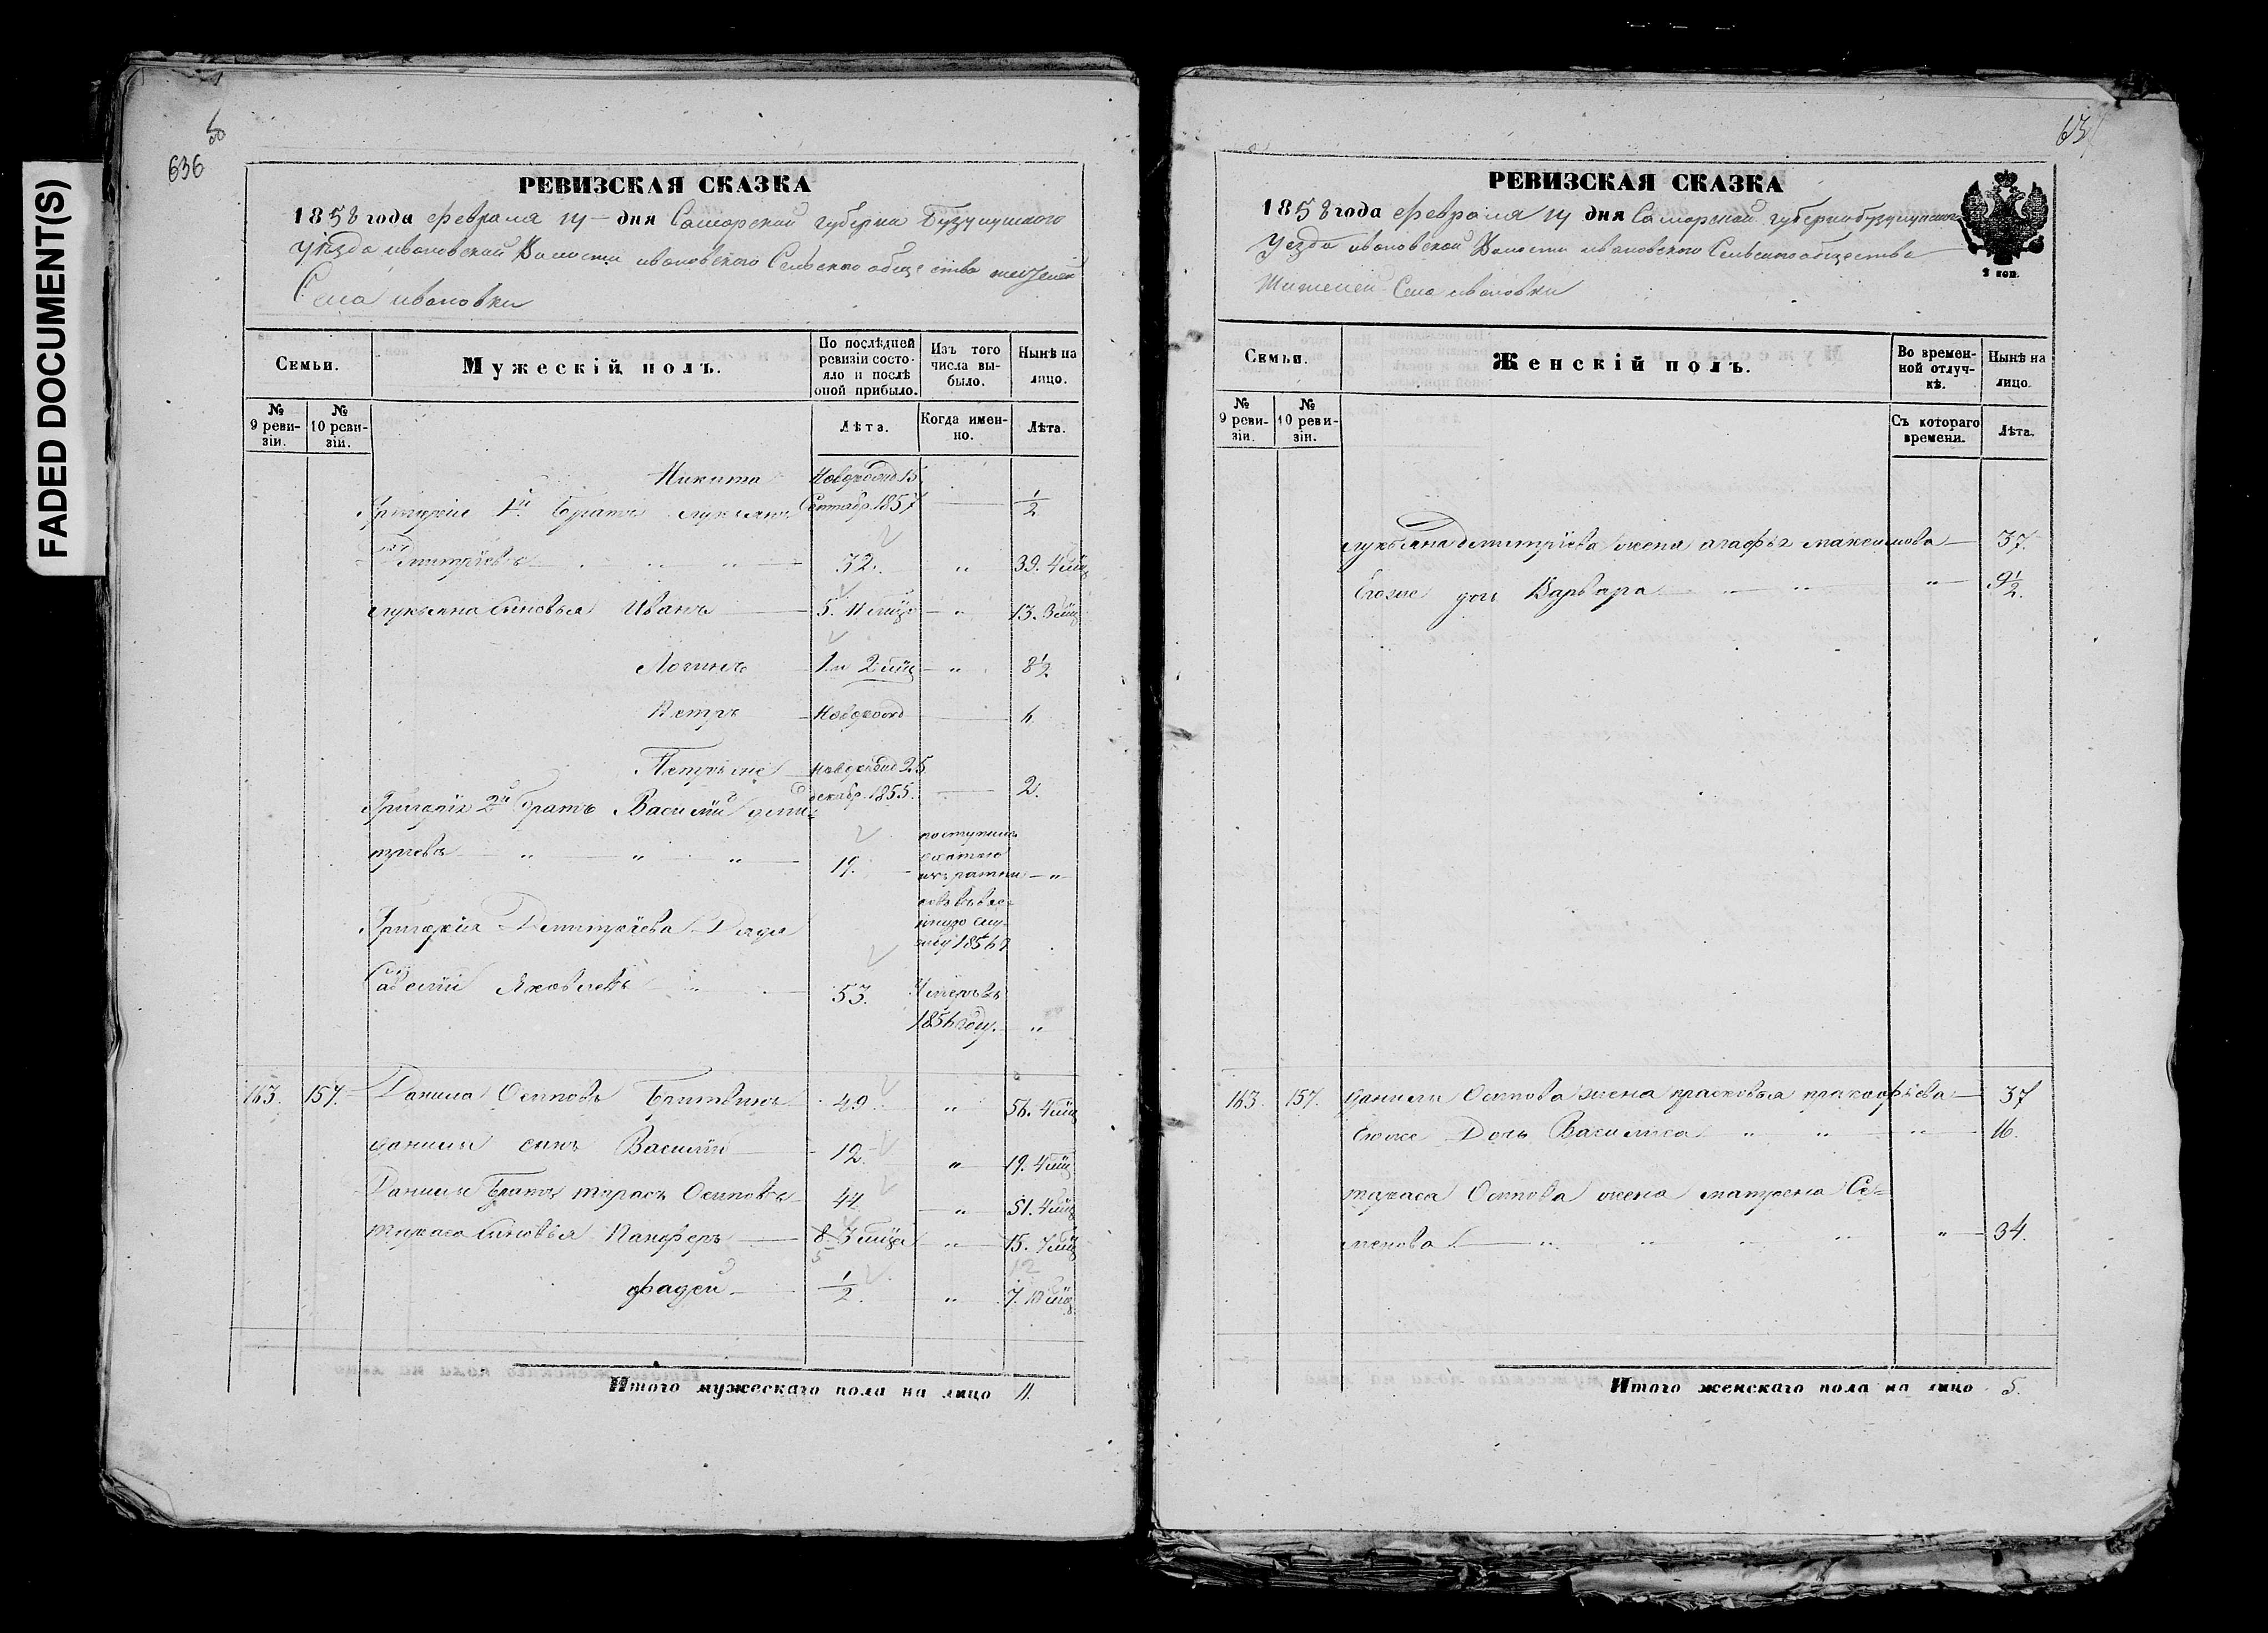 FADED DOCUMENT(S)
636
РЕВИЗСКАЯ СКАЗКА
1858 года февраля 14 дня Самарской губерни Бузулукского
Уѣзда ивановской Волости ивановского Сельского общества жителей
Села ивановки
Семьи.
Мужескій полъ.
По послѣдней ревизіи состояло и послѣ оной прибыло.
Изъ того числа выбыло.
Нынѣ на лицо.
№ 9 ревизіи.
№ 10 ревизіи.
Лѣта.
Когда именно.
Лѣта.
Никита Новорожд 15
Сентабр. 1857 1/2
Григорія Братъ лукьянъ
Дмитріевъ 32. „ 39. 4 мѣц
лукьяна сыновья Иванъ 5. 11 мѣцо „ 13. 3 мѣц
Логинъ 1 и 2 мѣц „ 8 1/2
Петръ Новорожд
Новорожд 25
декабр. 1855. 2.
Григорія 2й братъ Василій дми=
тріевъ „ „ „ 19. „
поступилъ
службу 185
Григорія Дмитріева Дядя
Савелій Яковлевъ 53. Умеръ въ
1856 году. „
163. 157. Данила Осиповъ Бритвинъ 49. „ 56. 4 мѣц
данилы сынъ Василій 12. „ 19. 4 мѣц
Данилы Братъ тарасъ Осиповъ 44. „ 51. 4 мѣц
тараса сыновья Панферъ 8. 3 мѣцо „ 15. 7 мѣц
5 12
фадей 1/2. „ 7. 10 мѣц
Итого мужескаго пола на лицо 11.
637
РЕВИЗСКАЯ СКАЗКА
1858 года февраля 14 дня Самарской губерни бузулукского
Уезда ивановской Волости ивановского Сельского общества
Жителей Села ивановки
2 коп.
Семьи.
Женскій полъ.
Во временной отлучкѣ.
Нынѣ на лицо.
№ 9 ревизіи.
№ 10 ревизіи.
Съ котораго времени.
Лѣта.
лукьяна дмитріева жена агафья максимова 37.
Егоже дочь Варвара „ „ „ 9 1/2.
163. 157. данилы Осипова жена прасковья пракофьева 37
Егоже Дочь Василиса „ „ „ 16.
тараса Осипова жена матрена Се=
менова „ „ „ „ „ 34.
Итого женскаго пола на лицо 5.